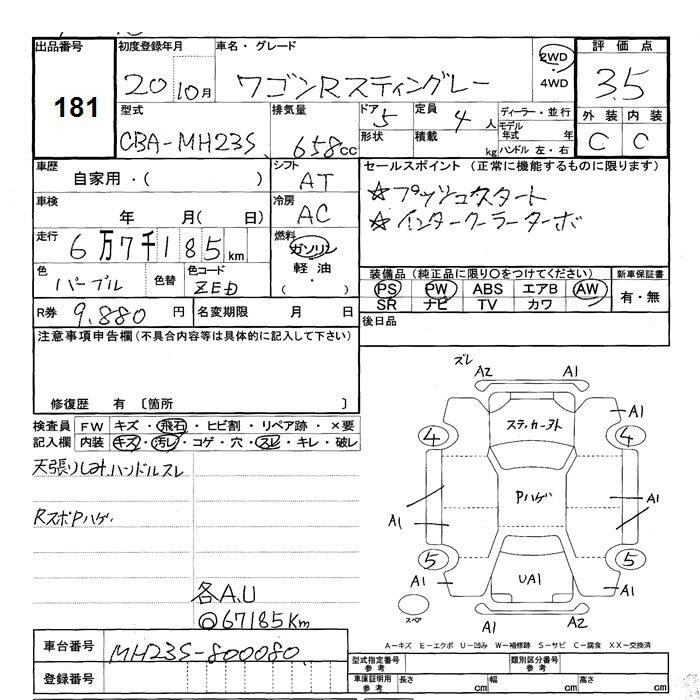 出品番号
181
初度登録年月
20 10月
車名・グレード
ワゴンRスティングレー
2WD
・
4WD
評価点
3.5
外装 内装
C C
型式
CBA-MH23S
排気量
658cc
ドア 5
形状
定員 4人
積載 kg
ディーラー・並行
モデル年式 年
ハンドル 左・右
車歴
自家用・( )
シフト
AT
車検
年 月( 日)
冷房
AC
走行
6万7千185km
燃料
ガソリン
軽油
・
( )
色
パープル
色替
色コード
ZED
R券 9,880円
名変期限 月 日
セールスポイント (正常に機能するものに限ります)
☆プッシュスタート
☆インタークーラーターボ
装備品(純正品に限り○をつけてください)
PS PW ABS エアB AW
SR ナビ TV カワ
新車保証書
有・無
後日品
注意事項申告欄(不具合内容等は具体的に記入して下さい)
修復歴 有 〔箇所 〕
検査員記入欄
FW キズ・飛石・ヒビ割・リペア跡・×要
内装 キズ・汚レ・コゲ・穴・スレ・キレ・破レ
天張りしみ、ハンドルスレ
RスポPハゲ
各A.U
◎67185Km
ズレ
A2 A1
ステッカーアト
A1
4 4
Pハゲ
A1 A1
5 5
A1 UA1 A1
スペア
A1 A2
A-キズ E-エクボ U-凹み W-補修跡 S-サビ C-腐食 XX-交換済
車台番号
MH23S-800080
登録番号
型式指定番号 参考
類別区分番号 参考
車庫証明用 参考
長さ cm 幅 cm 高さ cm